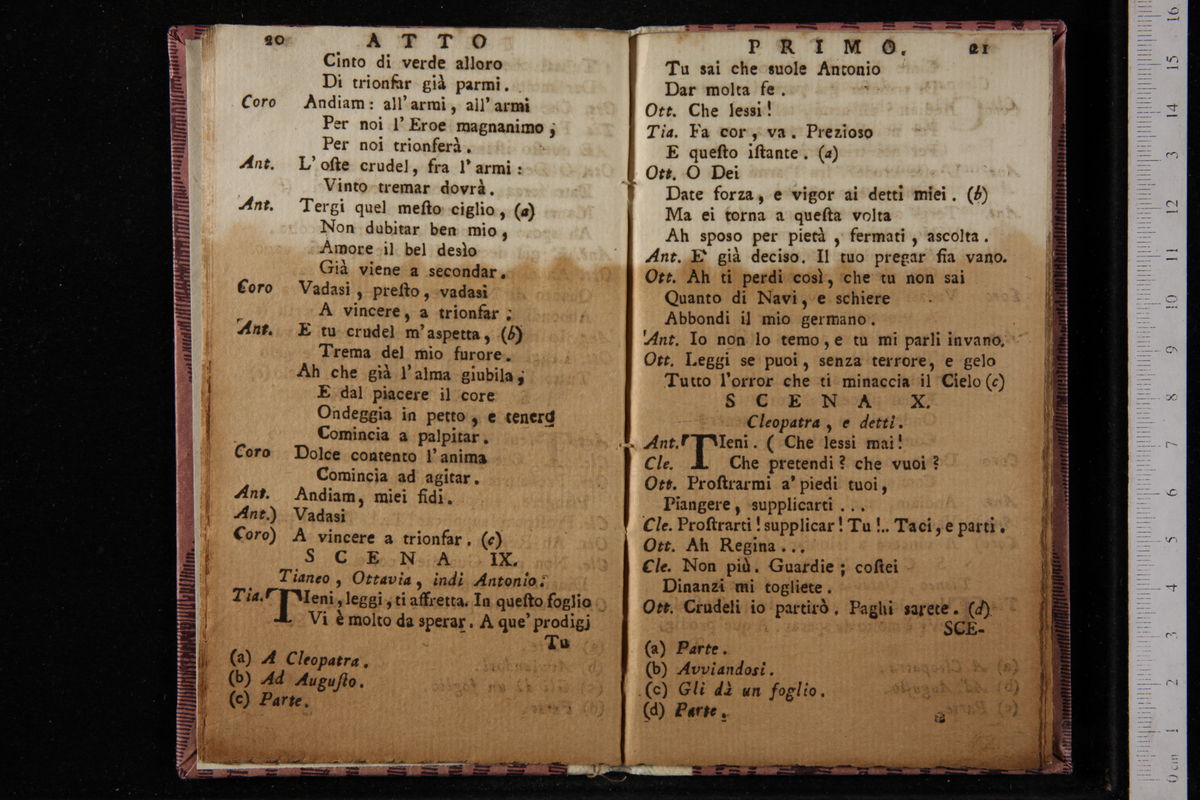 20 ATTO
Cinto di verde alloro
Di trionfar già parmi.
Coro Andiam: all'armi, all'armi
Per noi l'Eroe magnanimo;
Per noi trionferà.
Ant. L'oſte crudel, fra l'armi:
Vinto tremar dovrà.
Ant. Tergi quel meſto ciglio, (a)
Non dubitar ben mio,
Amore il bel desìo
Già viene a secondar.
Coro Vadasi, preſto, vadasi
A vincere, a trionfar;
Ant. E tu crudel m'aspetta, (b)
Trema del mio furore.
Ah che già l'alma giubila;
E dal piacere il core
Ondeggia in petto, e tenero
Comincia a palpitar.
Coro Dolce contento l'anima
Comincia ad agitar.
Ant. Andiam, miei fidi.
Ant.) Vadasi
Coro) A vincere a trionfar. (c)
SCENA IX.
Tianeo, Ottavia, indi Antonio.
Tia. TIeni, leggi, ti affretta. In queſto foglio
Vi è molto da sperar. A que' prodigj
Tu
(a) A Cleopatra.
(b) Ad Auguſto.
(c) Parte.
PRIMO. 21
Tu sai che suole Antonio
Dar molta fe.
Ott. Che lessi!
Tia. Fa cor, va. Prezioso
E queſto iſtante. (a)
Ott. O Dei
Date forza, e vigor ai detti miei. (b)
Ma ei torna a queſta volta
Ah sposo per pietà, fermati, ascolta.
Ant. E' già deciso. Il tuo pregar fia vano.
Ott. Ah ti perdi così, che tu non sai
Quanto di Navi, e schiere
Abbondi il mio germano.
Ant. Io non lo temo, e tu mi parli invano.
Ott. Leggi se puoi, senza terrore, e gelo
Tutto l'orror che ti minaccia il Cielo (c)
SCENA X.
Cleopatra, e detti.
Ant. TIeni. ( Che lessi mai!
Cle. Che pretendi? che vuoi?
Ott. Proſtrarmi a' piedi tuoi,
Piangere, supplicarti...
Cle. Proſtrarti! supplicar! Tu!.. Taci, e parti.
Ott. Ah Regina...
Cle. Non più. Guardie; coſtei
Dinanzi mi togliete.
Ott. Crudeli io partirò. Paghi sarete. (d)
SCE-
(a) Parte.
(b) Avviandosi.
(c) Gli dà un foglio.
(d) Parte.
0 cm 1 2 3 4 5 6 7 8 9 10 11 12 13 14 15 16